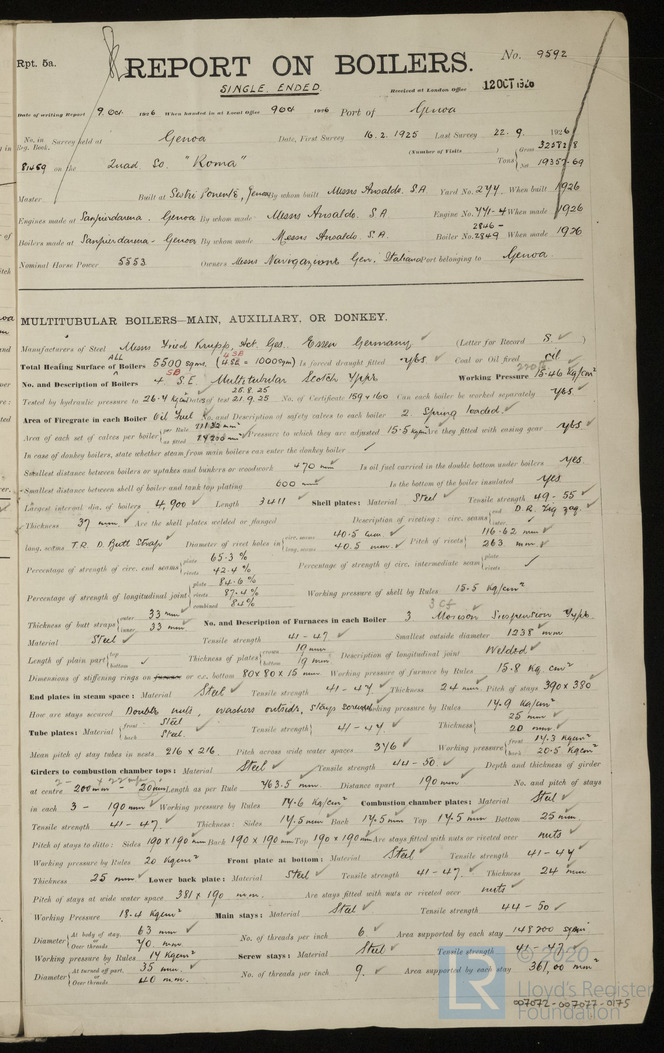 Rpt. 5a.
REPORT ON BOILERS.
No. 9592
SINGLE ENDED.
Received at London Office 12 OCT 1926
Date of writing Report 9 Oct 1926 When handed in at Local Office 9 Oct 1926 Port of Genoa
No. in Reg. Book. Survey held at Genoa Date, First Survey 16.2.1925 Last Survey 22.9.1926
(Number of Visits )
81489 on the Quad Sc. "Roma" Tons Gross Net 19357.69
Master Built at Sestri Ponente, Genoa By whom built Messrs Ansaldo. S.A. Yard No. 277 When built 1926
Engines made at Sampierdarena. Genoa By whom made Messrs Ansaldo. S.A. Engine No. When made 1926
Boilers made at Sampierdarena - Genoa By whom made Messrs Ansaldo. S.A. Boiler No. 2846-2849 When made 1926
Nominal Horse Power 5553 Owners Messrs Navigazione Gen. Italiana Port belonging to Genoa
MULTITUBULAR BOILERS—MAIN, AUXILIARY, OR DONKEY.
Manufacturers of Steel Messrs Fried Krupp, Act. Ges. Essen Germany (Letter for Record S )
Total Heating Surface of Boilers ALL 5500 sqms. (4 SB = 1000 sqm) Is forced draught fitted yes. Coal or Oil fired oil
No. and Description of Boilers 4 S.E. Multitubular Scotch Type Working Pressure 15.46 Kg/cm²
Tested by hydraulic pressure to 26.4 Kg/cm² Date of test 25.8.25 21.9.25 No. of Certificate 159 & 160 Can each boiler be worked separately yes.
Area of Firegrate in each Boiler Oil Fuel No. and Description of safety valves to each boiler 2. Spring loaded.
Area of each set of valves per boiler per Rule as fitted Pressure to which they are adjusted 15.5 Kg/cm² Are they fitted with easing gear yes.
In case of donkey boilers, state whether steam from main boilers can enter the donkey boiler
Smallest distance between boilers or uptakes and bunkers or woodwork 470 mm Is oil fuel carried in the double bottom under boilers yes.
Smallest distance between shell of boiler and tank top plating 600 mm Is the bottom of the boiler insulated yes
Largest internal dia. of boilers 4,900 Length 3411 Shell plates: Material Steel Tensile strength 49-55
Thickness 37 mm Are the shell plates welded or flanged Description of riveting: circ. seams end D.R. Zig zag.
long. seams T.R. D. Butt Straps Diameter of rivet holes in circ. seams 40.5 mm. long. seams 40.5 mm. Pitch of rivets 116.62 mm 263. mm.
Percentage of strength of circ. end seams plate 65.3 % rivets 42.4 % Percentage of strength of circ. intermediate seam plate rivets
Percentage of strength of longitudinal joint plate 84.6 % rivets 87.4 % combined 84 % Working pressure of shell by Rules 15.5 Kg/cm²
Thickness of butt straps outer 33 mm inner 33 mm No. and Description of Furnaces in each Boiler 3 Morison Suspension Type
Material Steel Tensile strength 41-47 Smallest outside diameter 1238 mm
Length of plain part top bottom Thickness of plates crown 19 mm bottom 19 mm Description of longitudinal joint Welded
Dimensions of stiffening rings on furnace or c.c. bottom 80 x 80 x 15 mm Working pressure of furnace by Rules 15.8 Kg. cm²
End plates in steam space: Material Steel Tensile strength 41-47 Thickness 24 mm Pitch of stays 390 x 380
How are stays secured Double nuts, washers outside, stays screwed Working pressure by Rules 14.9 Kg/cm²
Tube plates: Material front Steel back Steel. Tensile strength 41-47 Thickness 25 mm 20 mm
Mean pitch of stay tubes in nests 216 x 216 Pitch across wide water spaces 376 Working pressure front 17.3 Kg/cm² back 20.5 Kg/cm²
Girders to combustion chamber tops: Material Steel Tensile strength 44-50. Depth and thickness of girder
at centre 200 mm - 20 mm Length as per Rule 763.5 mm Distance apart 190 mm No. and pitch of stays
in each 3 - 190 mm Working pressure by Rules 17.6 Kg/cm² Combustion chamber plates: Material Steel
Tensile strength 41-47. Thickness: Sides 17.5 mm Back 17.5 mm Top 17.5 mm Bottom 25 mm.
Pitch of stays to ditto: Sides 190 x 190 mm Back 190 x 190 mm Top 190 x 190 mm Are stays fitted with nuts or riveted over nuts
Working pressure by Rules 20 Kg/cm² Front plate at bottom: Material Steel Tensile strength 41-47
Thickness 25 mm Lower back plate: Material Steel Tensile strength 41-47. Thickness 24 mm
Pitch of stays at wide water space 381 x 190 mm. Are stays fitted with nuts or riveted over nuts
Working Pressure 18.4 Kg/cm² Main stays: Material Steel Tensile strength 44-50
Diameter At body of stay. 63 mm or Over threads 70 mm. No. of threads per inch 6 Area supported by each stay 148200 sqmm
Working pressure by Rules 17 Kg/cm² Screw stays: Material Steel Tensile strength 41-47.
Diameter At turned off part, 35 mm. or Over threads 40 mm. No. of threads per inch 9. Area supported by each stay 361,00 mm²
© 2020
LR Lloyd's Register Foundation
007072-007077-0175